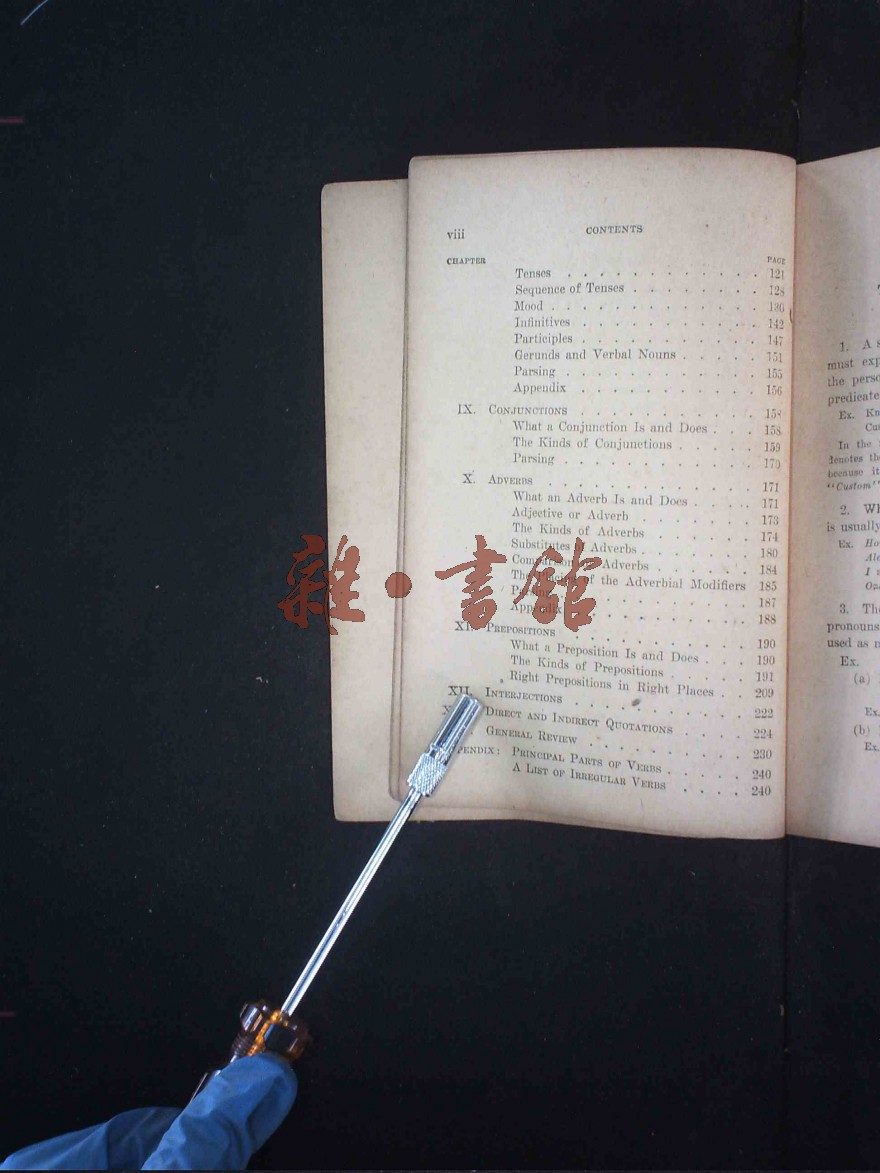 viii CONTENTS
CHAPTER PAGE
Tenses . . . . . . . . . . . . . 121
Sequence of Tenses . . . . . . . . . 128
Mood . . . . . . . . . . . . . . 130
Infinitives . . . . . . . . . . . . 142
Participles . . . . . . . . . . . . 147
Gerunds and Verbal Nouns . . . . . . 151
Parsing . . . . . . . . . . . . . 155
Appendix . . . . . . . . . . . . 156
IX. CONJUNCTIONS . . . . . . . . . . . .
What a Conjunction Is and Does . . . 158
The Kinds of Conjunctions . . . . . . 159
Parsing . . . . . . . . . . . . . 170
X. ADVERBS . . . . . . . . . . . . . 171
What an Adverb Is and Does . . . . . 171
Adjective or Adverb . . . . . . . . 173
The Kinds of Adverbs . . . . . . . 174
Substitutes Adverbs . . . . . . . 180
Adverbs . . . . . . 184
The of the Adverbial Modifiers 185
187
188
PREPOSITIONS . . . . . . . . . . 190
What a Preposition Is and Does . . . 190
The Kinds of Prepositions . . . . . 191
Right Prepositions in Right Places . . 209
XII. INTERJECTIONS . . . . . . . . . . 222
DIRECT AND INDIRECT QUOTATIONS . . . . 224
GENERAL REVIEW . . . . . . . . . 230
PRINCIPAL PARTS OF VERBS . . . . . 240
A LIST OF IRREGULAR VERBS . . . . 240
1. A
must
the
predicate
Ex.
In the
denotes the
because it
"Custom"
2.
is usually
Ex.
I
3. The
pronouns
used as
Ex.
(a)
Ex.
(b)
Ex.
雜·書館